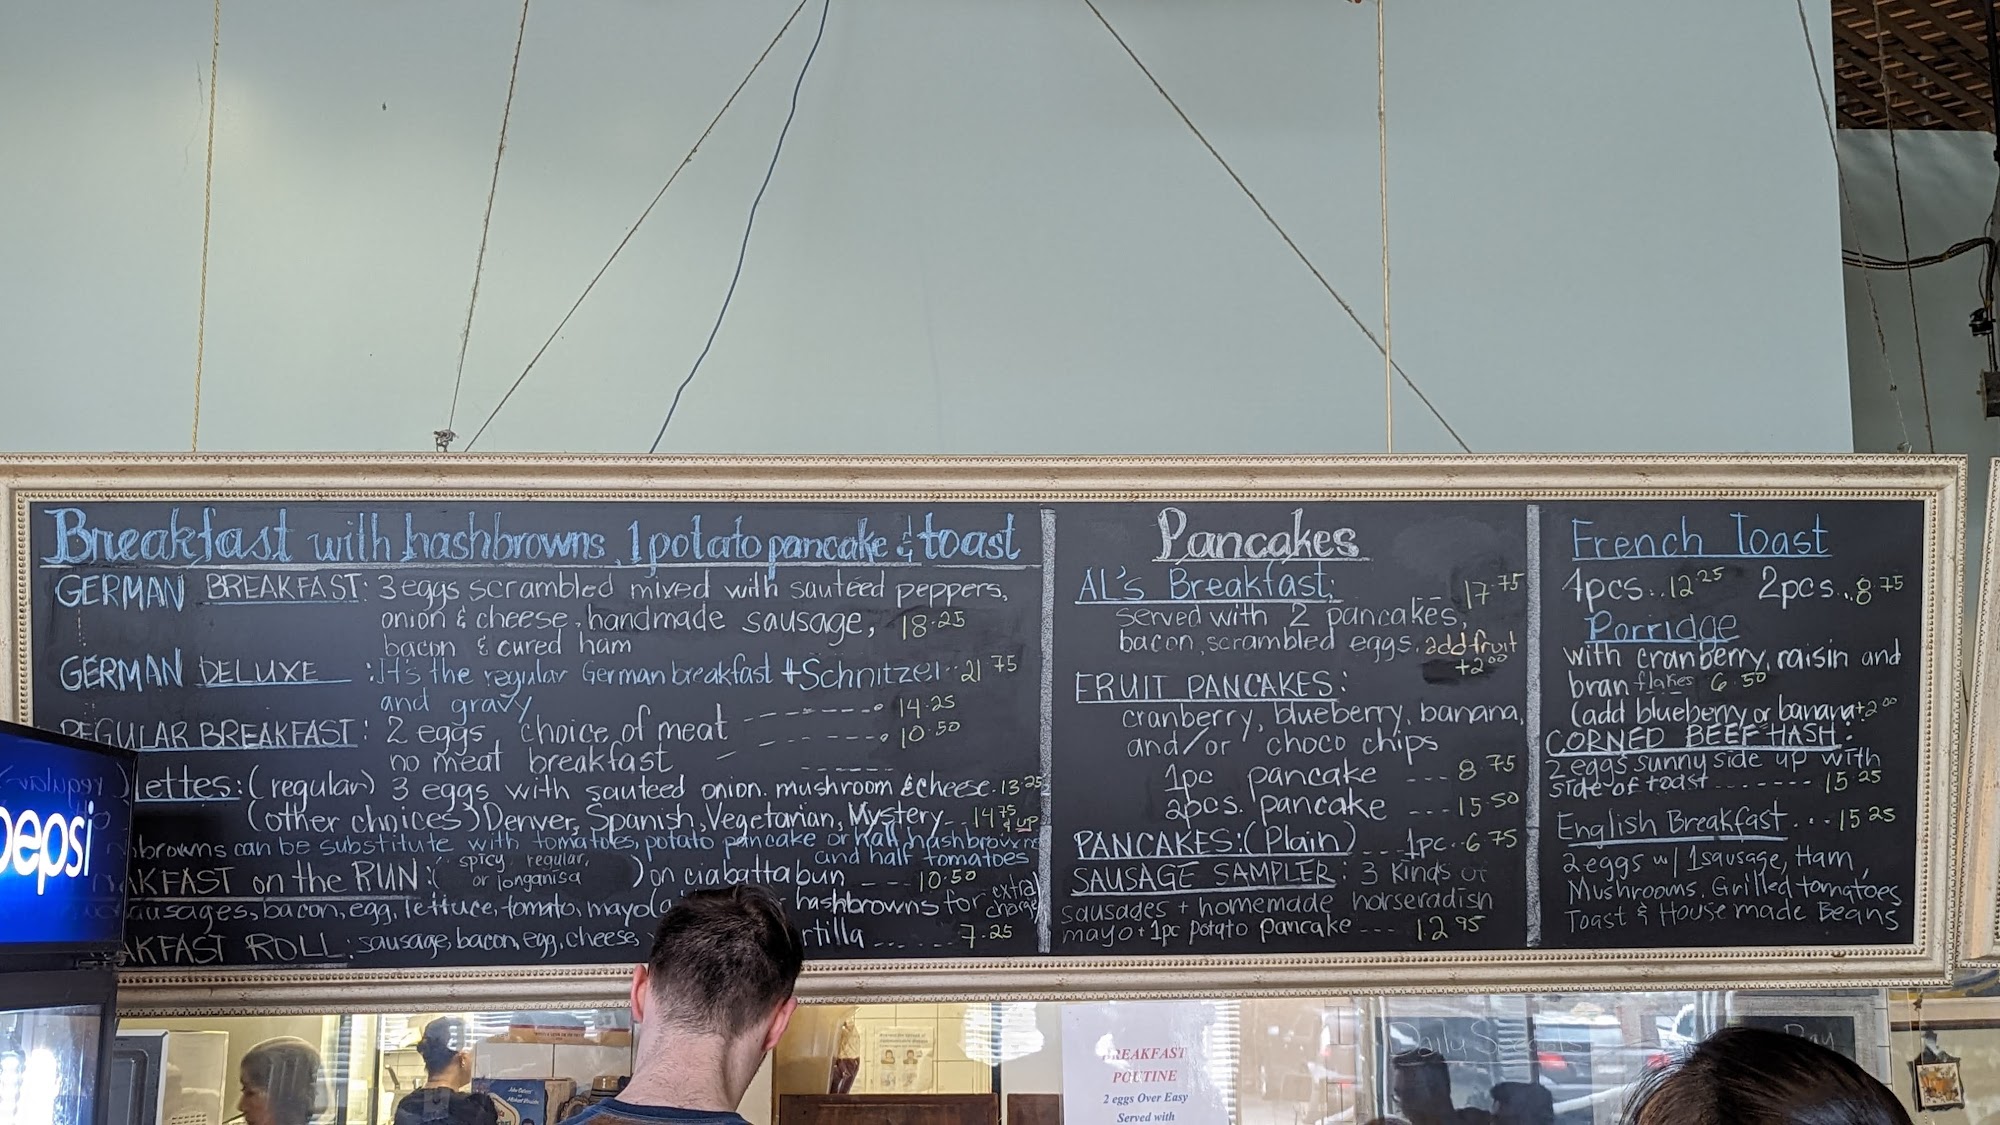 Breakfast with hashbrowns, 1 potato pancake & toast
GERMAN BREAKFAST: 3 eggs scrambled mixed with sauteed peppers,
onion & cheese, handmade sausage, 18.25
bacon & cured ham
GERMAN DELUXE : It's the regular German breakfast + Schnitzel .. 21 75
and gravy
REGULAR BREAKFAST: 2 eggs, choice of meat ------- 14.25
no meat breakfast ------- 10.50
lettes: (regular) 3 eggs with sauteed onion. mushroom & cheese. 13 25
(other choices) Denver, Spanish, Vegetarian, Mystery -- 14 75 & up
hbrowns can be substitute with tomatoes, potato pancake or half hashbrowns
and half tomatoes
AKFAST on the RUN: (spicy, regular, or longanisa) on ciabatta bun --- 10.50
ausages, bacon, egg, lettuce, tomato, mayo hashbrowns for extra charge)
AKFAST ROLL: sausage, bacon, egg, cheese, rtilla ... 7.25
Pancakes
AL'S Breakfast: -- 17.75
served with 2 pancakes,
bacon, scrambled eggs. add fruit
+2.00
FRUIT PANCAKES:
cranberry, blueberry, banana,
and/or choco chips
1pc pancake --- 8 75
2pcs. pancake --- 15.50
PANCAKES: (Plain) --- 1pc. 6 75
SAUSAGE SAMPLER: 3 kinds of
sausages + homemade horseradish
mayo + 1pc potato pancake --- 12 95
French Toast
4pcs... 12 25 2pcs... 8 75
Porridge
with cranberry, raisin and
bran flakes 6.50
(add blueberry or banana +2 00
CORNED BEEF HASH:
2 eggs sunny side up with
side of toast ------- 15 25
English Breakfast ... 15 25
2 eggs w/ 1 sausage, Ham,
Mushrooms, Grilled tomatoes
Toast & House made Beans
pepsi
BREAKFAST
POUTINE
2 eggs Over Easy
Served with
Daily